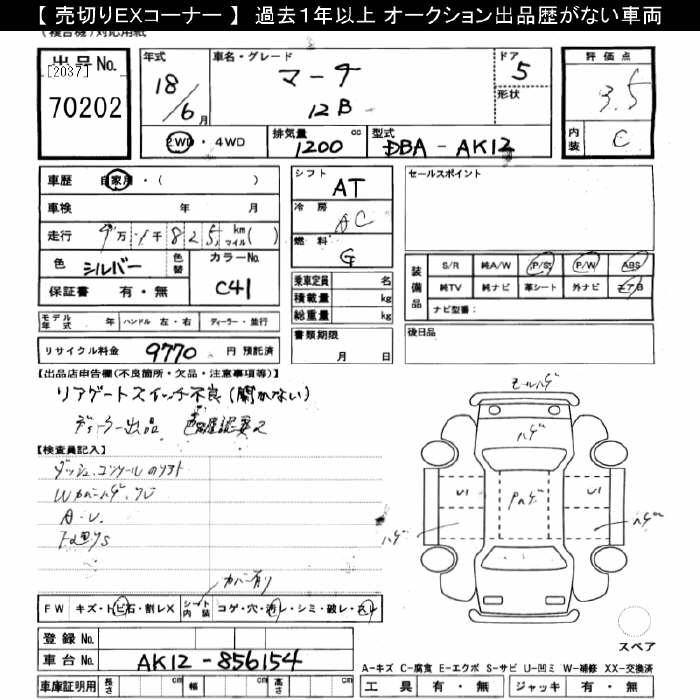 【 売切りEXコーナー 】 過去1年以上 オークション出品歴がない車両
(複合機)対応用紙
出品No.
[2037]
70202
年式
18/6月
車名・グレード
マーチ
12B
ドア
5
形状
評価点
3.5
内装
C
2WD・4WD
排気量 1200 cc
型式 DBA-AK12
車歴 自家用・( )
車検 年 月
走行 9万1千825 km マイル( )
色 シルバー
色替
カラーNo.
C41
保証書 有・無
シフト
AT
冷房
AC
燃料
G
乗車定員 名
積載量 kg
総重量 kg
書類期限
月 日
セールスポイント
装備品
S/R 純A/W P/St P/W ABS
純TV 純ナビ 革シート 外ナビ エアB
ナビ型番:
後日品
モデル年式 年 ハンドル 左・右 ディーラー・並行
リサイクル料金 9770 円 預託済
【出品店申告欄(不良箇所・欠品・注意事項等)】
リアゲートスイッチ不良(開かない)
ディーラー出品
【検査員記入】
ダッシュ、コンソール
A・U
モールハゲ
ハゲ
U1
Pハゲ
U1
ハゲ
ハゲ
カバー有り
FW キズ・トビ石・割レX
シート内装 コゲ・穴・汚レ・シミ・破レ・スレ
登録No.
車台No. AK12-856154
車庫証明用 長さ cm 幅 cm 高さ cm
スペア
A-キズ C-腐食 E-エクボ S-サビ U-凹ミ W-補修 XX-交換済
工具 有・無 ジャッキ 有・無